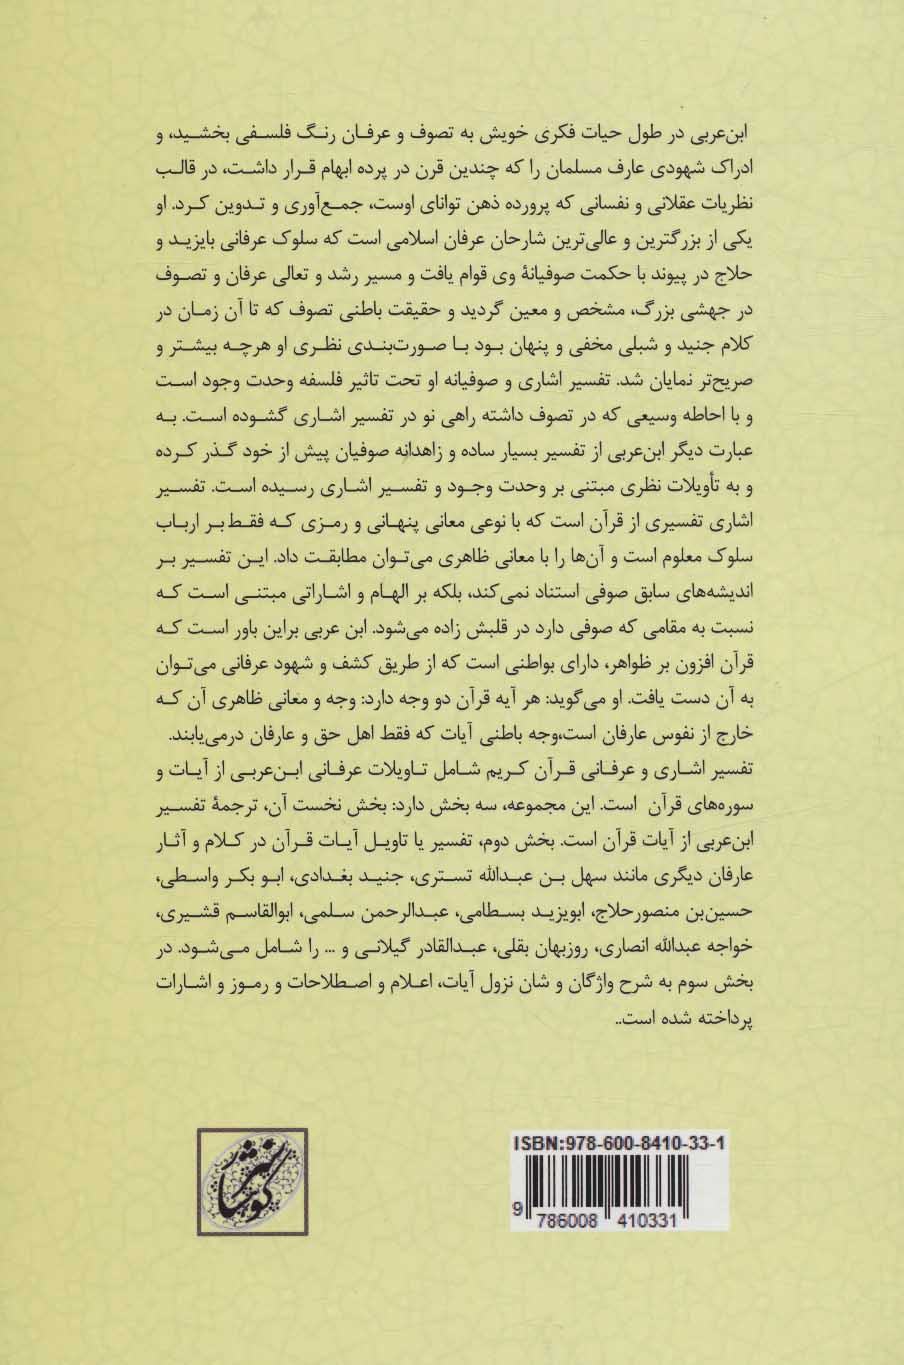 ابن‌عربی در طول حیات فکری خویش به تصوف و عرفان رنگ فلسفی بخشید، و
ادراک شهودی عارف مسلمان را که چندین قرن در پرده ابهام قرار داشت، در قالب
نظریات عقلانی و نفسانی که پرورده ذهن توانای اوست، جمع‌آوری و تدوین کرد. او
یکی از بزرگترین و عالی‌ترین شارحان عرفان اسلامی است که سلوک عرفانی بایزید و
حلاج در پیوند با حکمت صوفیانهٔ وی قوام یافت و مسیر رشد و تعالی عرفان و تصوف
در جهشی بزرگ، مشخص و معین گردید و حقیقت باطنی تصوف که تا آن زمان در
کلام جنید و شبلی مخفی و پنهان بود با صورت‌بندی نظری او هرچه بیشتر و
صریح‌تر نمایان شد. تفسیر اشاری و صوفیانه او تحت تاثیر فلسفه وحدت وجود است
و با احاطه وسیعی که در تصوف داشته راهی نو در تفسیر اشاری گشوده است. به
عبارت دیگر ابن‌عربی از تفسیر بسیار ساده و زاهدانه صوفیان پیش از خود گذر کرده
و به تأویلات نظری مبتنی بر وحدت وجود و تفسیر اشاری رسیده است. تفسیر
اشاری تفسیری از قرآن است که با نوعی معانی پنهانی و رمزی که فقط بر ارباب
سلوک معلوم است و آن‌ها را با معانی ظاهری می‌توان مطابقت داد. این تفسیر بر
اندیشه‌های سابق صوفی استناد نمی‌کند، بلکه بر الهام و اشاراتی مبتنی است که
نسبت به مقامی که صوفی دارد در قلبش زاده می‌شود. ابن عربی براین باور است که
قرآن افزون بر ظواهر، دارای بواطنی است که از طریق کشف و شهود عرفانی می‌توان
به آن دست یافت. او می‌گوید: هر آیه قرآن دو وجه دارد: وجه و معانی ظاهری آن که
خارج از نفوس عارفان است،وجه باطنی آیات که فقط اهل حق و عارفان درمی‌یابند.
تفسیر اشاری و عرفانی قرآن کریم شامل تاویلات عرفانی ابن‌عربی از آیات و
سوره‌های قرآن است. این مجموعه، سه بخش دارد: بخش نخست آن، ترجمهٔ تفسیر
ابن‌عربی از آیات قرآن است. بخش دوم، تفسیر یا تاویل آیات قرآن در کلام و آثار
عارفان دیگری مانند سهل بن عبدالله تستری، جنید بغدادی، ابو بکر واسطی،
حسین‌بن منصورحلاج، ابویزید بسطامی، عبدالرحمن سلمی، ابوالقاسم قشیری،
خواجه عبدالله انصاری، روزبهان بقلی، عبدالقادر گیلانی و ... را شامل می‌شود. در
بخش سوم به شرح واژگان و شان نزول آیات، اعلام و اصطلاحات و رموز و اشارات
پرداخته شده است..
ISBN:978-600-8410-33-1
9 786008 410331